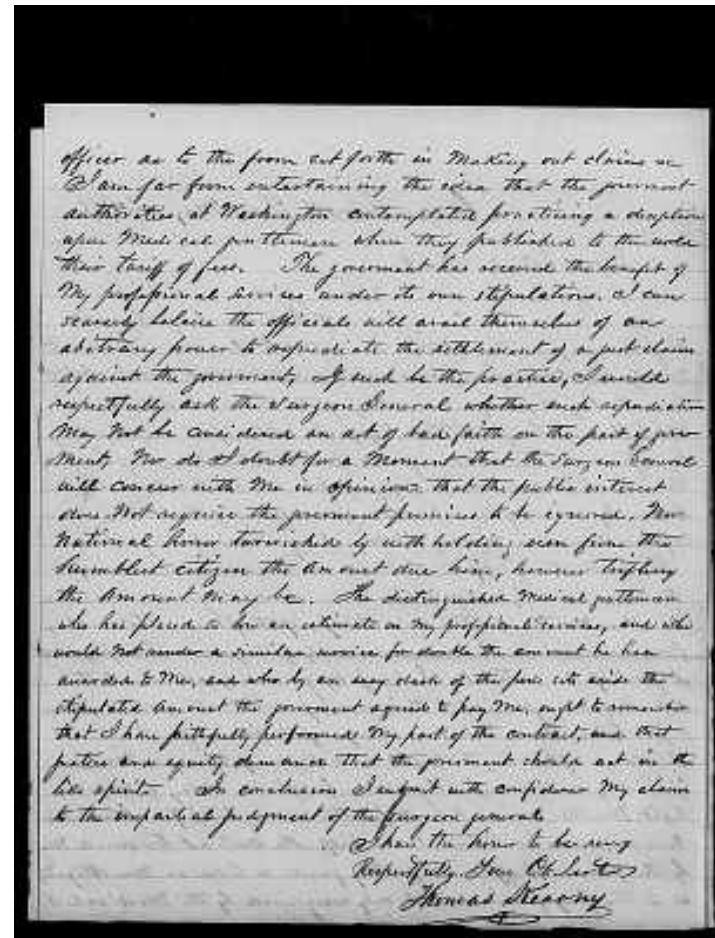 officer as to the from set forth in making out claims
I am far from entertaining the idea that the government
authorities, at Washington contemplated practicing a deception
upon Medical gentlemen when they published to the world
their tariff of fees. The government has received the benefit of
My professional services under its own stipulations. I can
scarcely believe the officials will avail themselves of an
abitrary power to repudiate the settlement of a just claim
against the government, If such be the practice, I would
respectfully ask the Surgeon General whether such repudiation
May Not be considered an act of bad faith on the part of govern
ment, Nor do I doubt for a Moment that the Surgeon General
will concur with Me in opinion that the public interest
does Not require the government promises to be ignored, Nor
National honor tarnished by withholding even from the
humblest citizen the Amount due him, however trifling
the Amount May be. The distinguished Medical gentleman
who has placed so low an estimate on My professional services, and who
would Not render a similar service for double the amount he has
awarded to Me, and who by an easy dash of the pen sets aside the
stipulated Amount the government agreed to pay Me, ought to remember
that I have faithfully performed My part of the contract, and that
justice and equity demands that the government should act in the
like spirit. In conclusion I submit with confidence My claim
to the impartial judgment of the Surgeon general
I have the honor to be very
Respectfully Your Ob Servt
Thomas Kearny